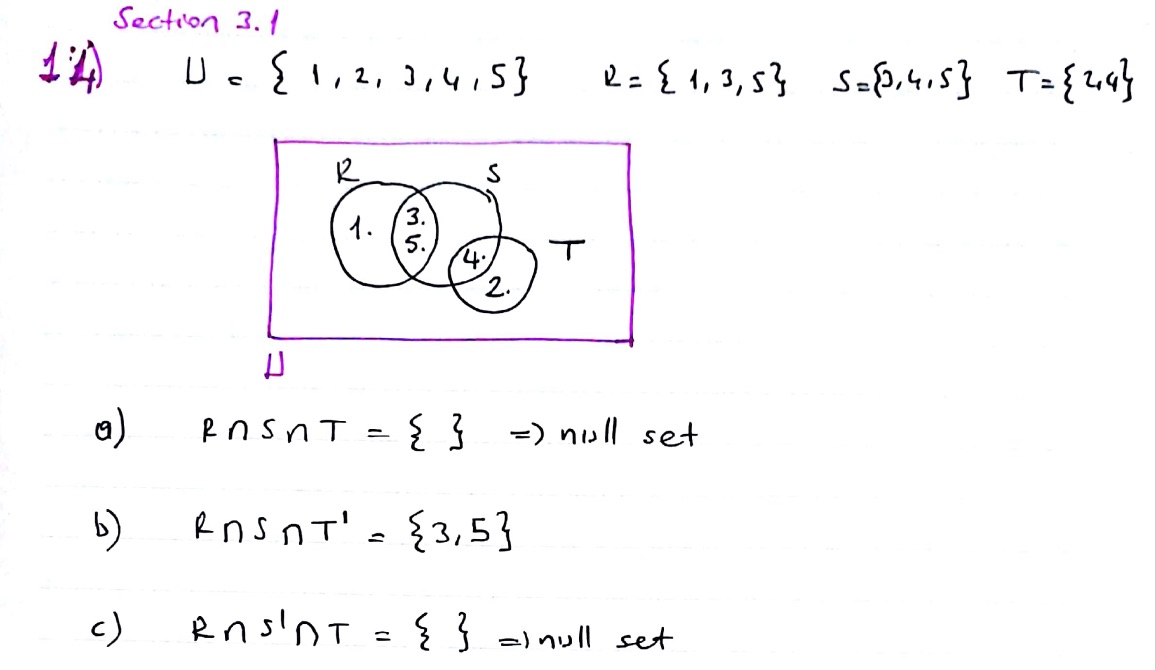 Section 3.1
U = { 1, 2, 3, 4, 5} R = { 1, 3, 5} S={3,4,5} T={2,4}
R S
1. 3.
5. T
4.
2.
U
a) R∩S∩T = { } => null set
b) R∩S∩T' = {3,5}
c) R∩S'∩T = { } => null set